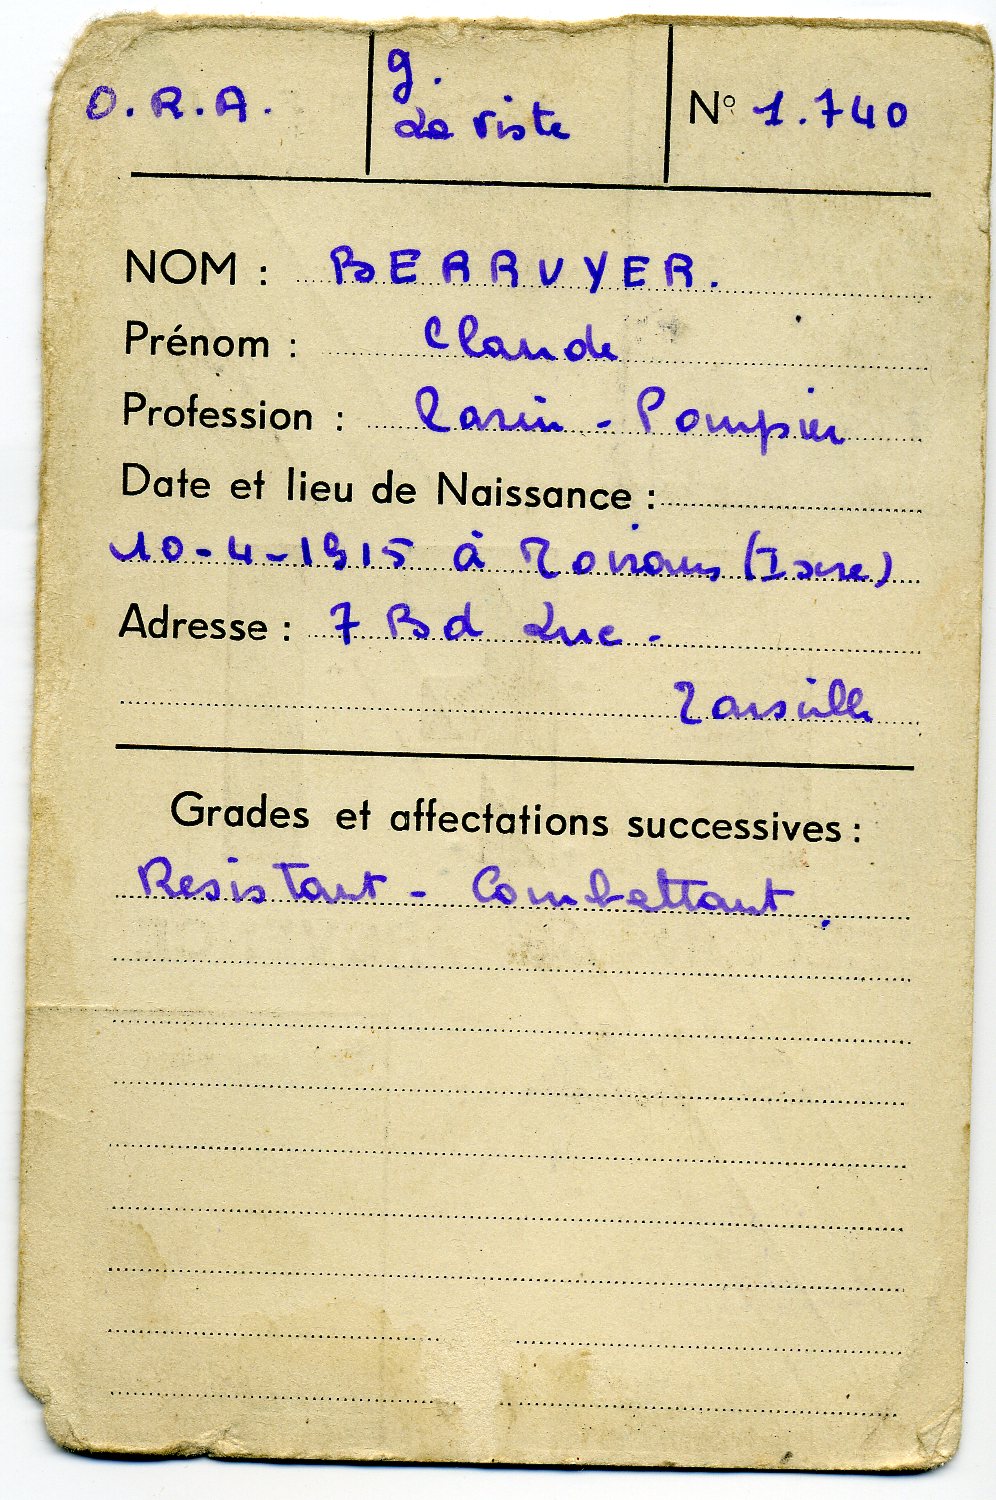 O.R.A.
g.
La Viste
N° 1.740
NOM : BERRUYER.
Prénom : Claude
Profession : Marin - Pompier
Date et lieu de Naissance :
10-4-1915 à Moirans (Isere)
Adresse : 7 Bd Luc -
Marseille
Grades et affectations successives :
Resistant - Combattant.